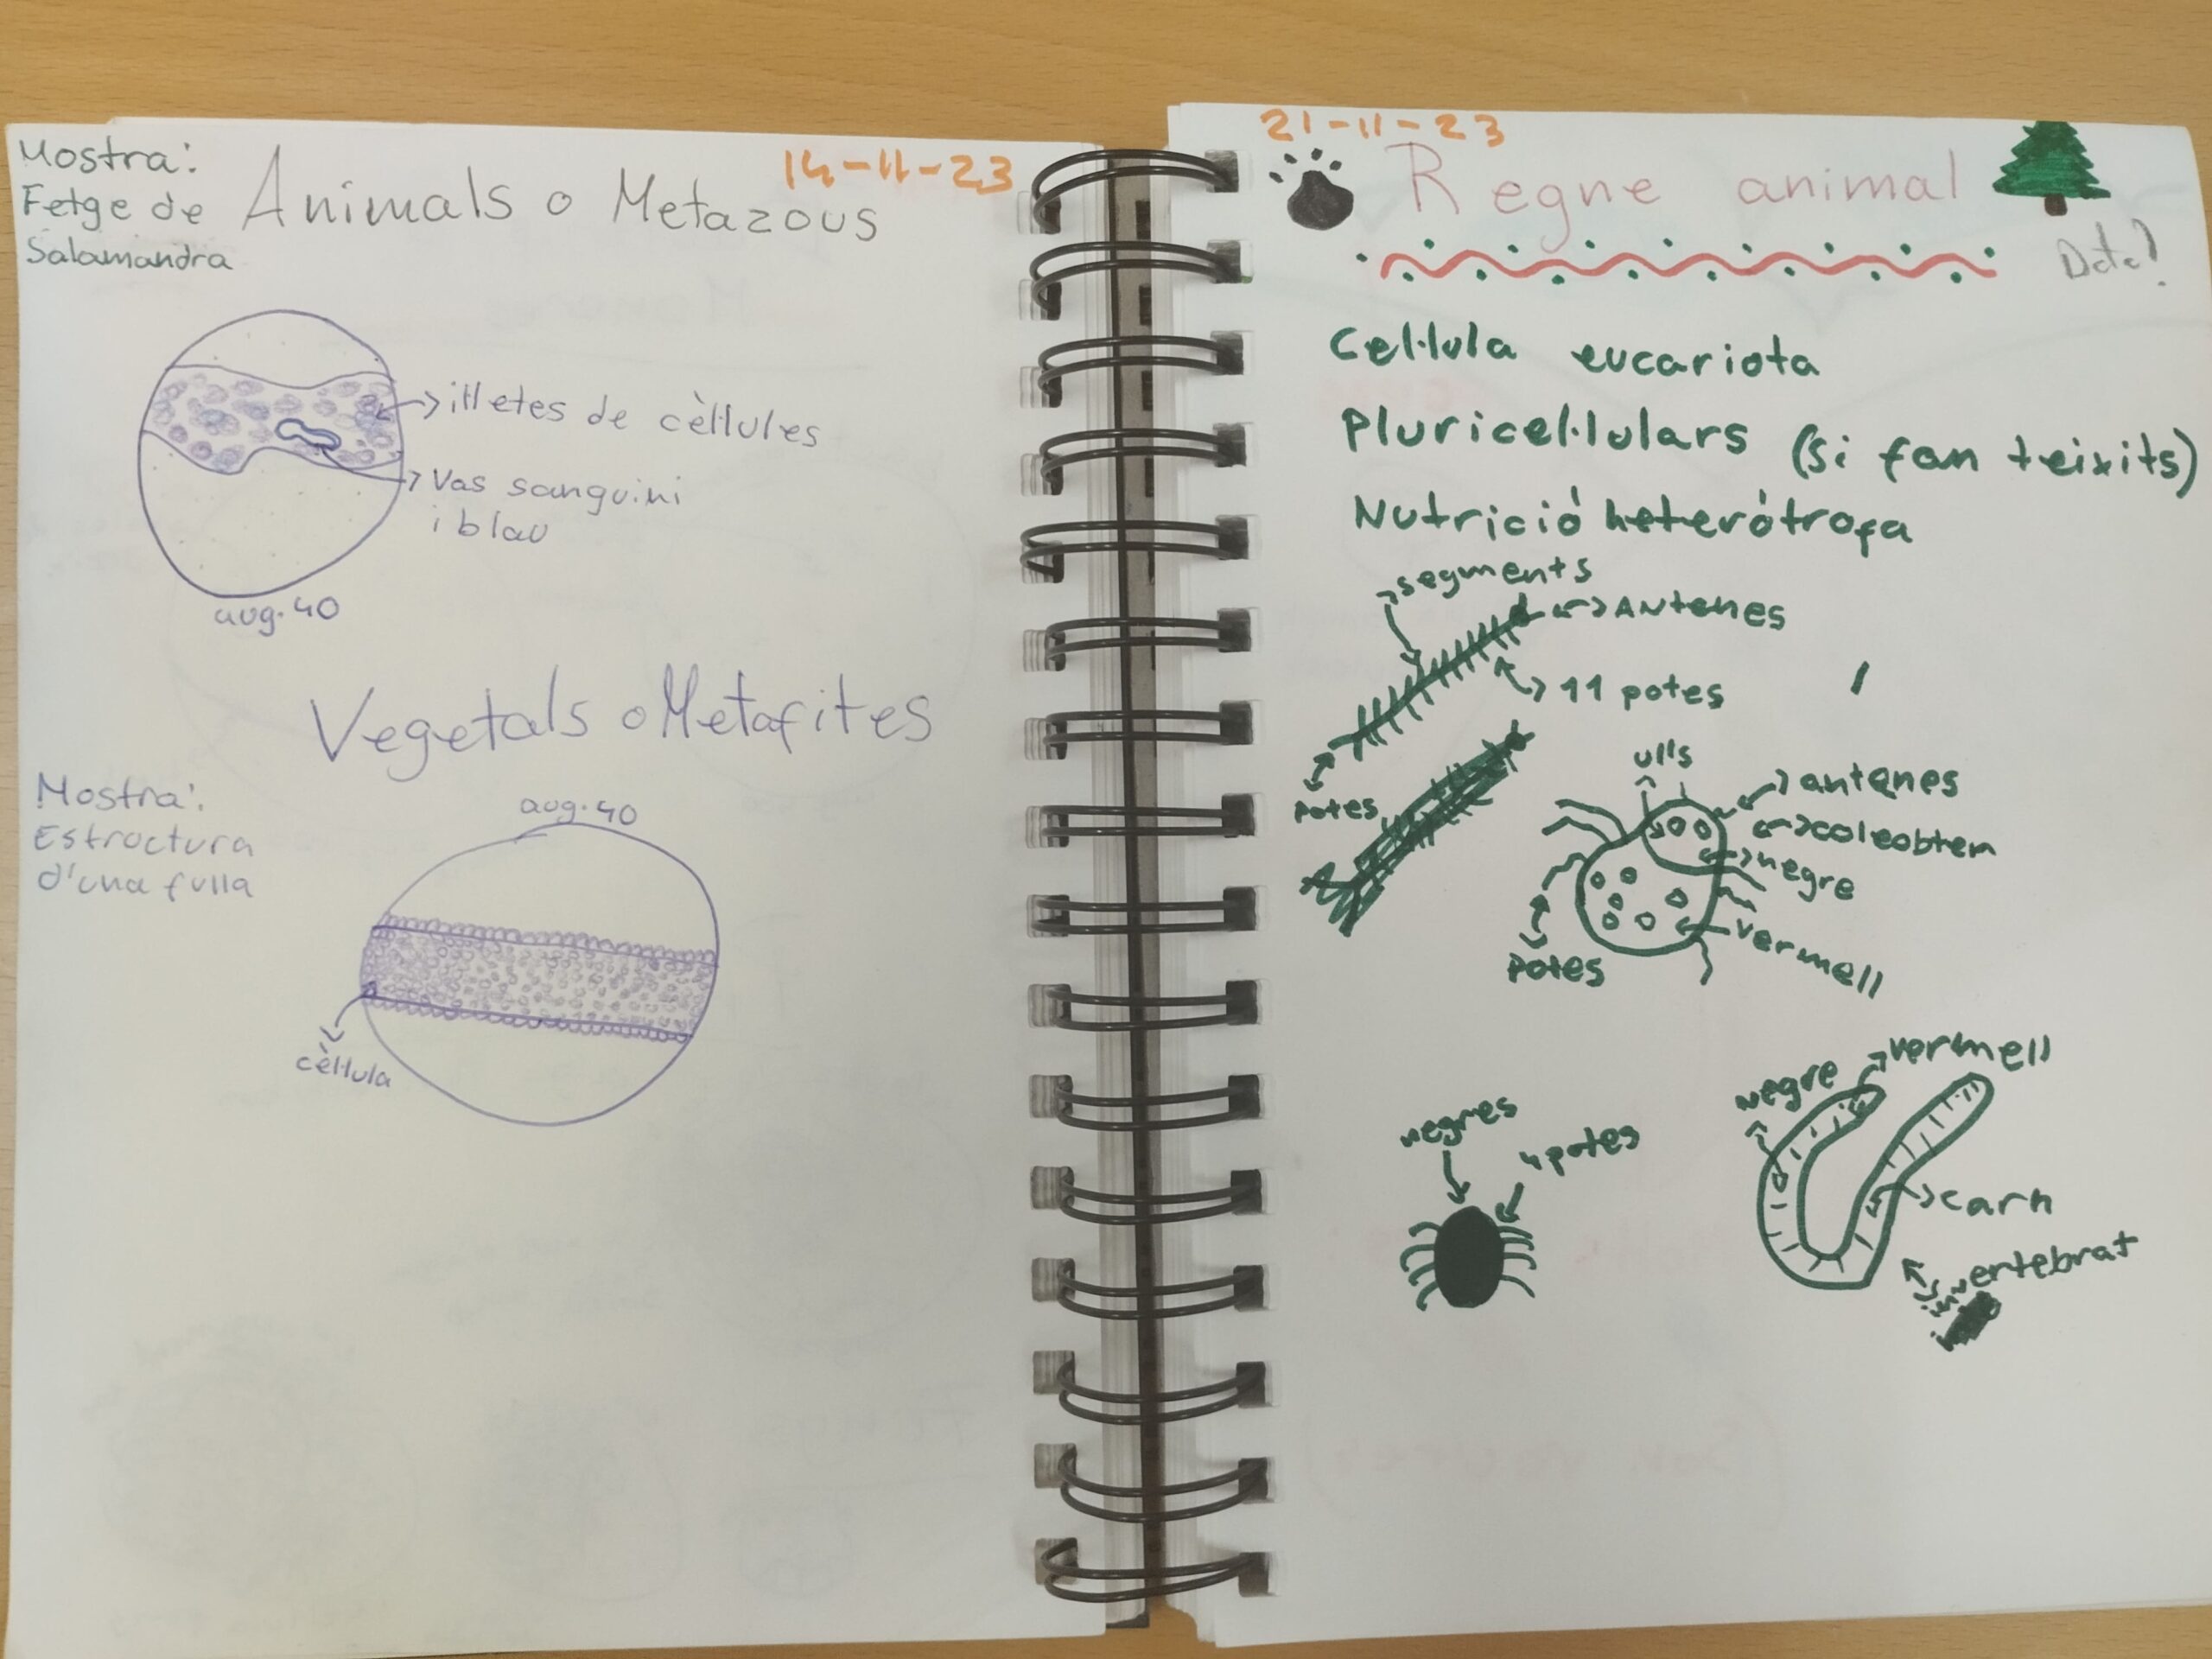 Mostra:
Fetge de
Salamandra
14-11-23
Animals o Metazous
illetes de cèl·lules
Vas sanguini
i blau
aug·40
Vegetals o Metafites
Mostra:
Estructura
d'una fulla
aug·40
cèl·lula
21-11-23
Regne animal
Data?
Cel·lula eucariota
Pluricel·lulars (si fan teixits)
Nutrició heteròtrofa
segments
Antenes
11 potes
potes
ulls
antenes
coleobten
negre
vermell
potes
negres
4potes
negre
vermell
carn
vertebrat